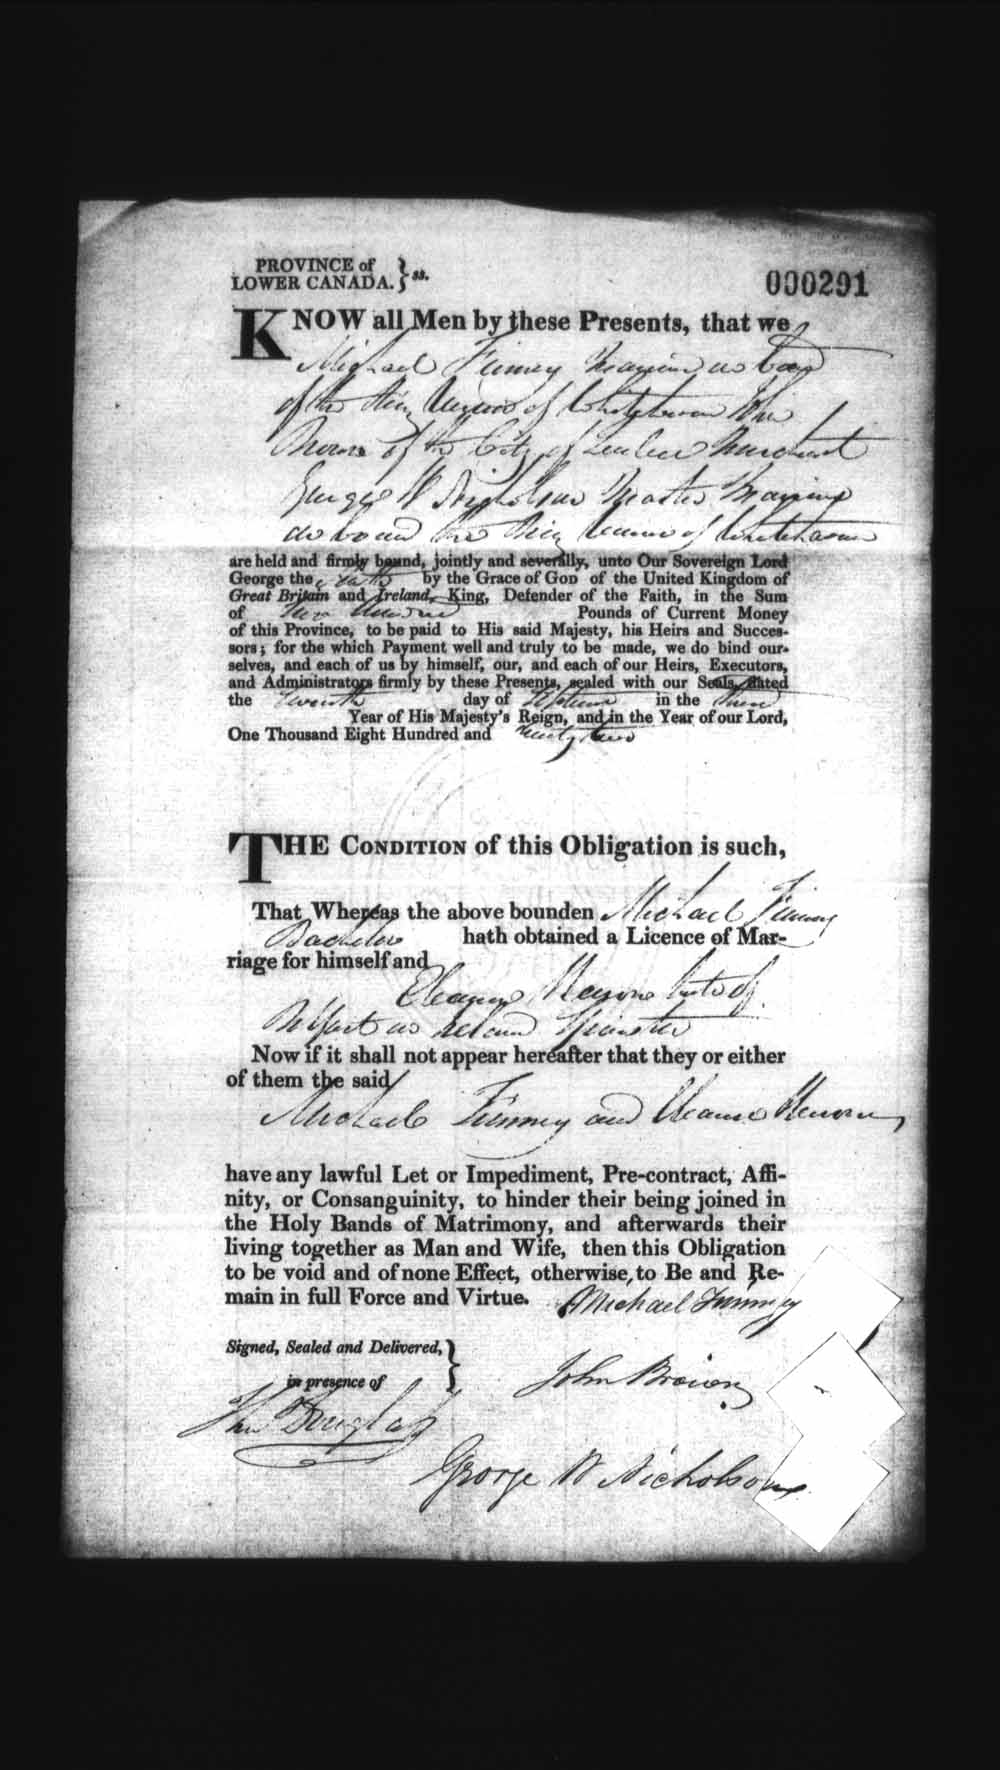 PROVINCE of
LOWER CANADA. } ss.
000291
KNOW all Men by these Presents, that we
Michael Finney
of the of Whitehaven John
Brown of the City of Quebec Merchant
George W Nicholson Master
of Whitehaven
are held and firmly bound, jointly and severally, unto Our Sovereign Lord
George the by the Grace of GOD of the United Kingdom of
Great Britain and Ireland, King, Defender of the Faith, in the Sum
of two hundred Pounds of Current Money
of this Province, to be paid to His said Majesty, his Heirs and Succes-
sors; for the which Payment well and truly to be made, we do bind our-
selves, and each of us by himself, our, and each of our Heirs, Executors,
and Administrators firmly by these Presents, sealed with our Seals, dated
the day of in the third
Year of His Majesty's Reign, and in the Year of our Lord,
One Thousand Eight Hundred and twenty two
THE CONDITION of this Obligation is such,
That Whereas the above bounden Michael Finney
Bachelor hath obtained a Licence of Mar-
riage for himself and
Eleanor late of
Belfast in Ireland Spinster
Now if it shall not appear hereafter that they or either
of them the said
Michael Finney and Eleanor
have any lawful Let or Impediment, Pre-contract, Affi-
nity, or Consanguinity, to hinder their being joined in
the Holy Bands of Matrimony, and afterwards their
living together as Man and Wife, then this Obligation
to be void and of none Effect, otherwise to Be and Re-
main in full Force and Virtue.
Michael Finney
Signed, Sealed and Delivered, }
in presence of
John Brown
Douglas
George W Nicholson